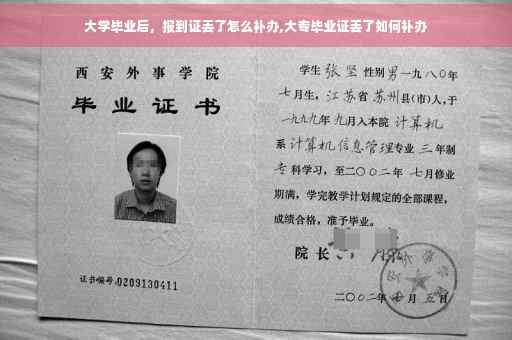 大学毕业后，报到证丢了怎么补办,大专毕业证丢了如何补办
西安外事学院
毕业证书
证书编号:0209130411
学生 张坚 性别 男 一九八〇年
七月生，江苏省 苏州 县(市)人，于
一九九九年 九月入本院 计算机
系 计算机信息管理专业 三 年制
专 科学习，至二〇〇二年 七月修业
期满，学完教学计划规定的全部课程，
成绩合格，准予毕业。
院长
二〇〇二年 月 五日